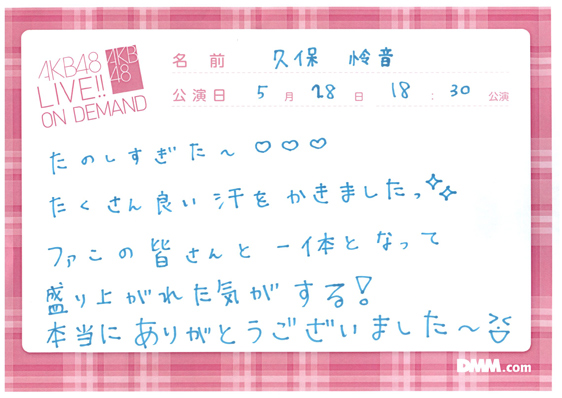 AKB48
LIVE!!
ON DEMAND
AKB
48
名前 久保 怜音
公演日 5月28日 18:30公演
たのしすぎた〜♡♡♡
たくさん良い汗をかきましたっ✨
ファこの皆さんと一体となって
盛り上がれた気がする!
本当にありがとうございました〜
DMM.com